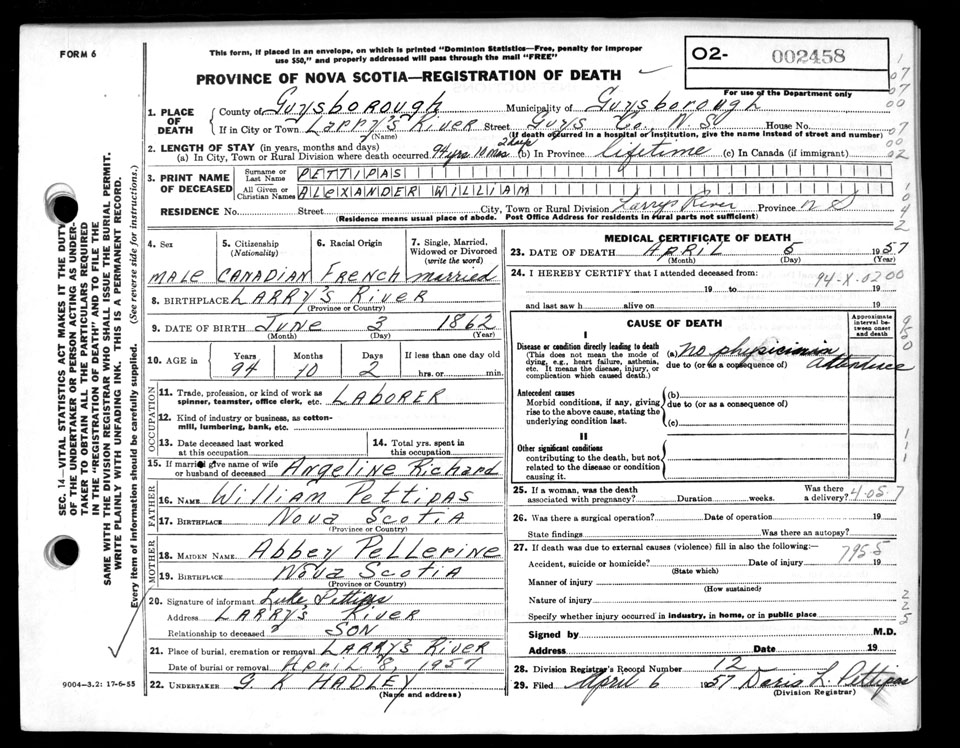 FORM 6
This form, if placed in an envelope, on which is printed "Dominion Statistics—Free, penalty for improper
use $50," and properly addressed will pass through the mail "FREE"
O2- 002458
For use of the Department only
PROVINCE OF NOVA SCOTIA—REGISTRATION OF DEATH
1. PLACE OF DEATH
County of Guysborough Municipality of Guysborough
If in City or Town Larry's River Street Guys Co, N.S. House No.
(Name) (If death occurred in a hospital or institution, give the name instead of street and number)
2. LENGTH OF STAY (in years, months and days)
(a) In City, Town or Rural Division where death occurred 94 yrs 10 mos 2 days (b) In Province lifetime (c) In Canada (if immigrant)
3. PRINT NAME OF DECEASED
Surname or Last Name PETTIPAS
All Given or Christian Names ALEXANDER WILLIAM
RESIDENCE No. Street City, Town or Rural Division Larrys River Province N S
(Residence means usual place of abode. Post Office Address for residents in rural parts not sufficient)
4. Sex
5. Citizenship (Nationality)
6. Racial Origin
7. Single, Married, Widowed or Divorced (write the word)
MALE CANADIAN French married
8. BIRTHPLACE LARRY'S River
(Province or Country)
9. DATE OF BIRTH June 3 1862
(Month) (Day) (Year)
10. AGE in Years Months Days If less than one day old
94 10 2 hrs. or min.
OCCUPATION
11. Trade, profession, or kind of work as spinner, teamster, office clerk, etc. LABORER
12. Kind of industry or business, as cotton-mill, lumbering, bank, etc.
13. Date deceased last worked at this occupation
14. Total yrs. spent in this occupation
15. If married give name of wife or husband of deceased Angeline Richard
FATHER
16. NAME William Pettipas
17. BIRTHPLACE Nova Scotia
(Province or Country)
MOTHER
18. MAIDEN NAME Abbey Pellerine
19. BIRTHPLACE Nova Scotia
(Province or Country)
20. Signature of informant Luke Pettipas
Address LARRY'S River
Relationship to deceased SON
21. Place of burial, cremation or removal LARRY'S River
Date of burial or removal April 8, 1957
22. UNDERTAKER G K HADLEY
(Name and address)
MEDICAL CERTIFICATE OF DEATH
23. DATE OF DEATH APRIL 5 1957
(Month) (Day) (Year)
24. I HEREBY CERTIFY that I attended deceased from:
94-X-0200
19 to 19
and last saw h alive on 19
CAUSE OF DEATH
Approximate interval between onset and death
I
Disease or condition directly leading to death
(This does not mean the mode of dying, e.g., heart failure, asthenia, etc. It means the disease, injury, or complication which caused death.)
(a) No physician attendence
due to (or as a consequence of)
Antecedent causes
Morbid conditions, if any, giving rise to the above cause, stating the underlying condition last.
(b)
due to (or as a consequence of)
(c)
II
Other significant conditions
contributing to the death, but not related to the disease or condition causing it.
25. If a woman, was the death associated with pregnancy? Duration weeks. Was there a delivery? 4-05-7
26. Was there a surgical operation? Date of operation 19
State findings Was there an autopsy?
27. If death was due to external causes (violence) fill in also the following:— 7955
Accident, suicide or homicide? Date of injury 19
(State which)
Manner of injury
(How sustained)
Nature of injury
Specify whether injury occurred in industry, in home, or in public place
Signed by M.D.
Address Date 19
28. Division Registrar's Record Number 12
29. Filed April 6 1957 Doris L. Pettipas
(Division Registrar)
SEC. 14—VITAL STATISTICS ACT MAKES IT THE DUTY
OF THE UNDERTAKER OR PERSON ACTING AS UNDER-
TAKER TO OBTAIN ALL THE PARTICULARS REQUIRED
IN THE "REGISTRATION OF DEATH" AND TO FILE THE
SAME WITH THE DIVISION REGISTRAR WHO SHALL ISSUE THE BURIAL PERMIT.
WRITE PLAINLY WITH UNFADING INK. THIS IS A PERMANENT RECORD.
Every item of information should be carefully supplied. (See reverse side for instructions.)
9004—3.2: 17-6-55